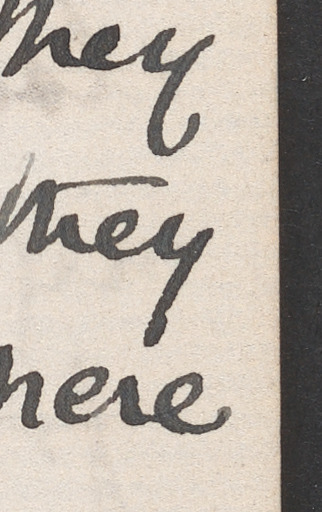 they
they
here